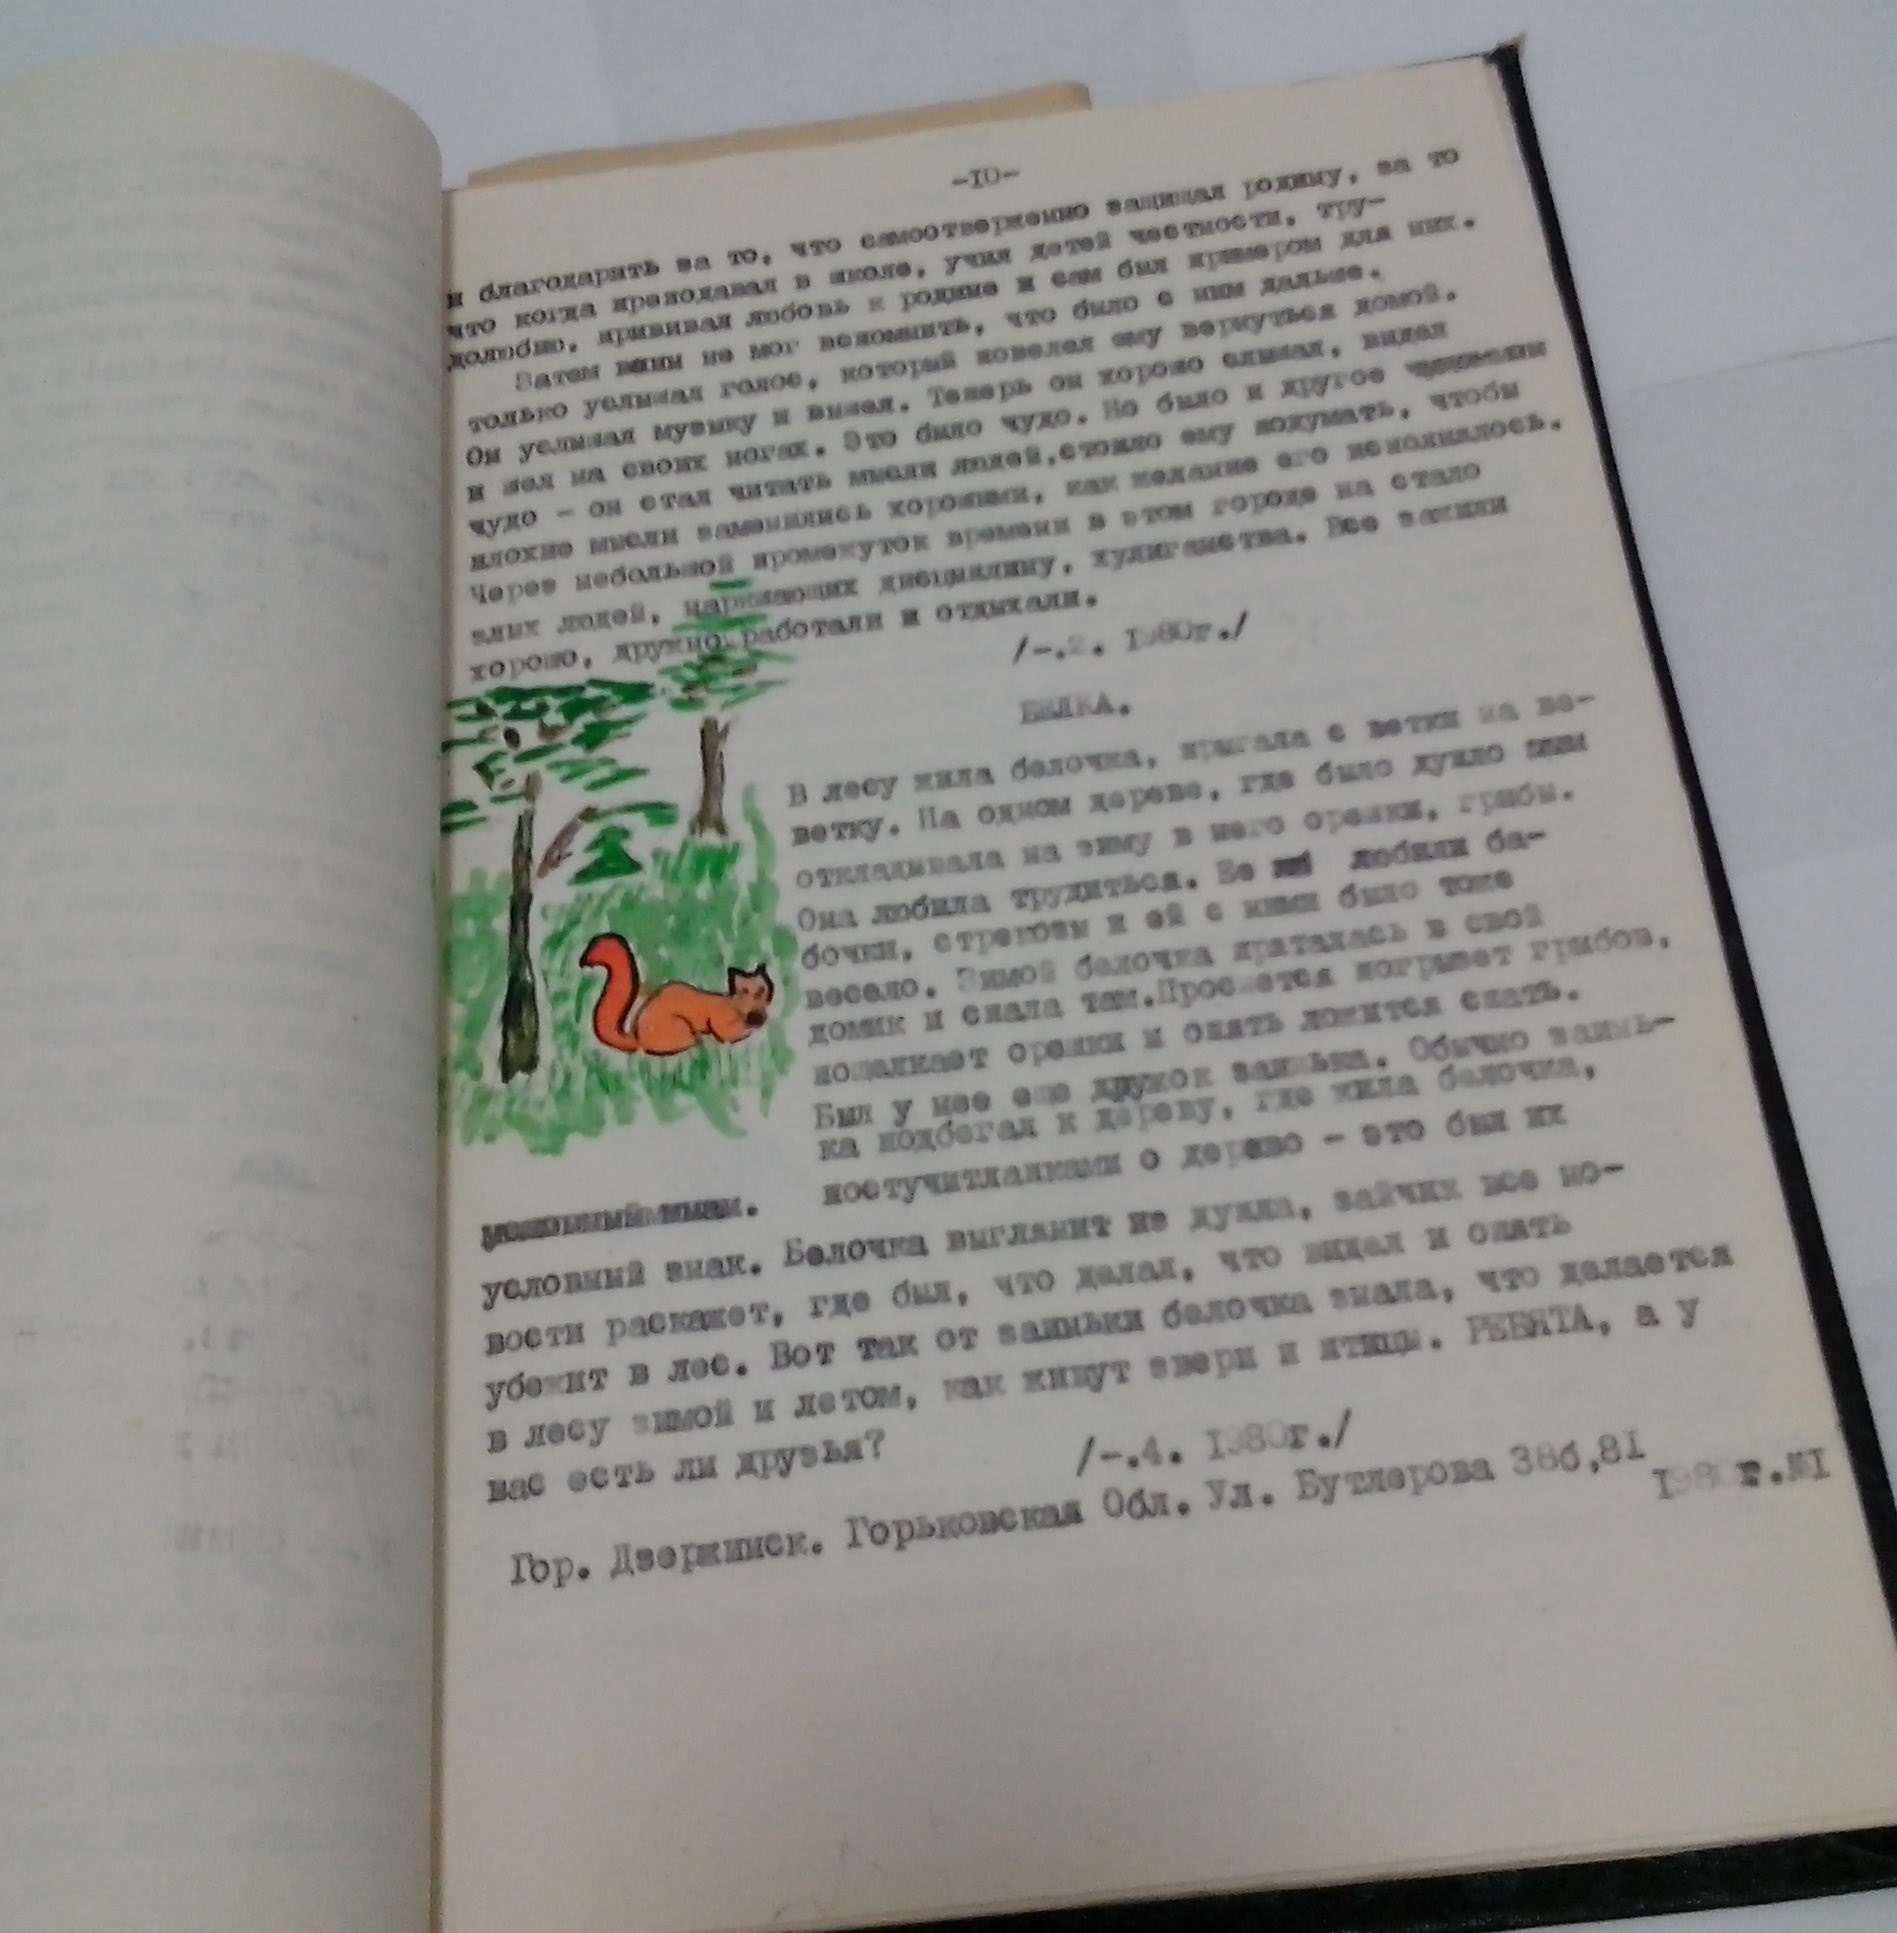 -10-
и благодарить за то, что самоотверженно защищал родину, за то
что когда преподавал в школе, учил детей честности, тру-
долюбию, прививал любовь к родине и сам был примером для них.
Затем не мог вспомнить, что было с ним дальше.
только услышал голос, который повелел ему вернуться домой.
Он услышал музыку и вышел. Теперь он хорошо слышал, видел
и шел на своих ногах. Это было чудо. Но было и другое
чудо - он стал читать мысли людей, стоило ему подумать, чтобы
плохие мысли заменились хорошими, как желание его исполнялось.
Через небольшой промежуток времени в этом городе на стало
злых людей, нарушающих дисциплину, хулиганства. Все зажили
хорошо, дружно работали и отдыхали.
/-.2. 1980г./
БЕЛКА.
В лесу жила белочка, прыгала с ветки на ве-
ветку. На одном дереве, где было дупло
откладывала на зиму в него орешки, грибы.
Она любила трудиться. Ее любили ба-
бочки, стрекозы и ей с ними было тоже
весело. Зимой белочка пряталась в свой
домик и спала там. Проснется погрызет грибов,
пощелкает орешки и опять ложится спать.
Был у нее еще дружок заинька. Обычно заинь-
ка подбегал к дереву, где жила белочка,
постучитлапками о дерево - это был их
условный знак. Белочка выгляннт из дупла, зайчик все но-
вости раскажет, где был, что делал, что видел и опять
убежит в лес. Вот так от заиньки белочка знала, что делается
в лесу зимой и летом, как живут звери и птицы. РЕБЯТА, а у
вас есть ли друзья?
/-.4. 1980г./
Гор. Дзержинск. Горьковская Обл. Ул. Бутлерова 38б,81
1980г.№1